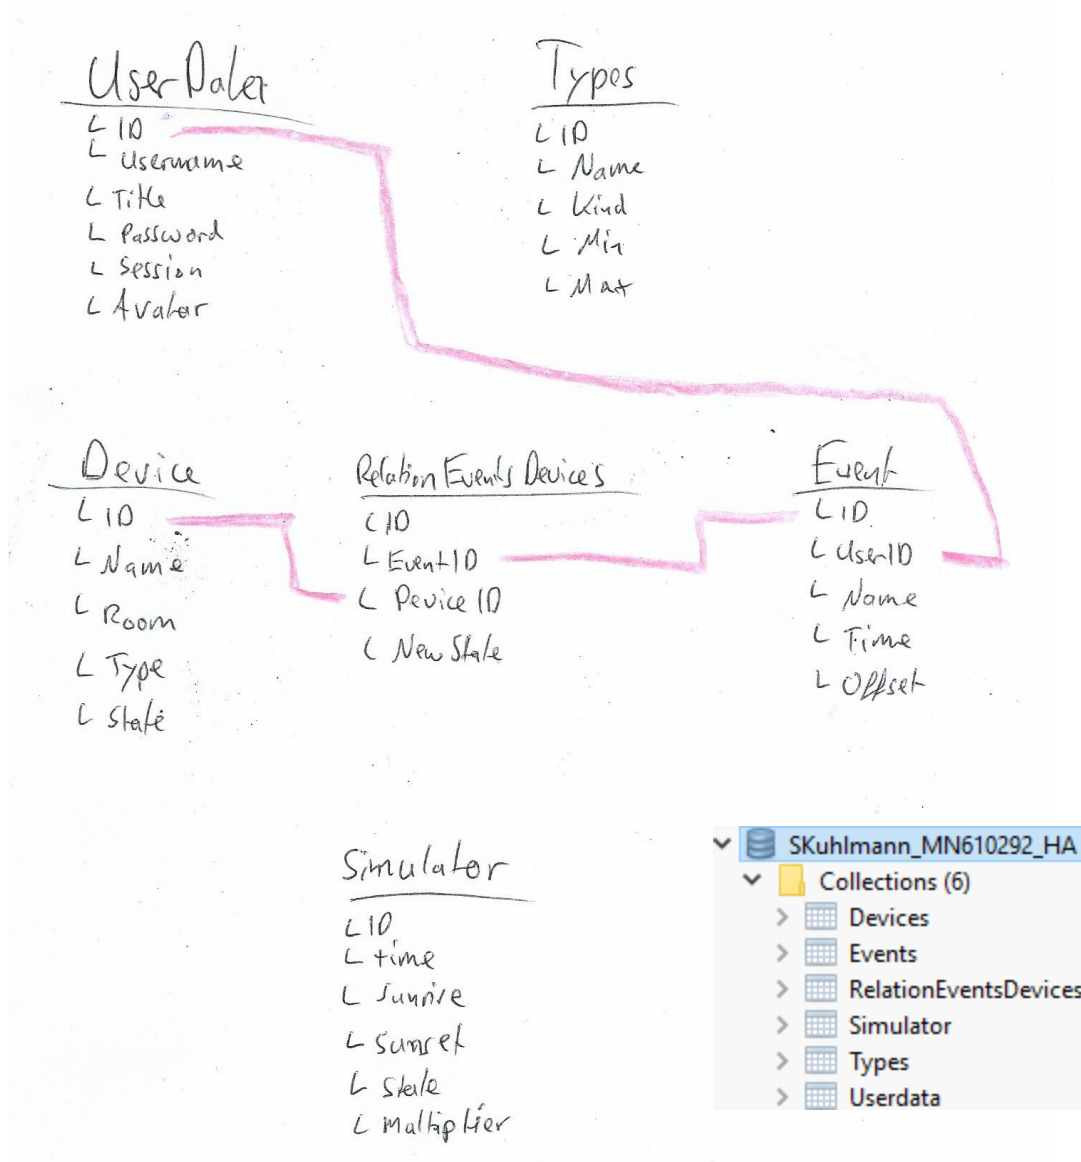 UserData
ID
Username
Title
Password
Session
Avatar
Types
ID
Name
Kind
Min
Max
Device
ID
Name
Room
Type
State
Relation Events Devices
ID
EventID
DeviceID
New State
Event
ID
UserID
Name
Time
Offset
Simulator
ID
time
Sunrise
Sunset
State
Multiplier
SKuhlmann_MN610292_HA
Collections (6)
Devices
Events
RelationEventsDevices
Simulator
Types
Userdata